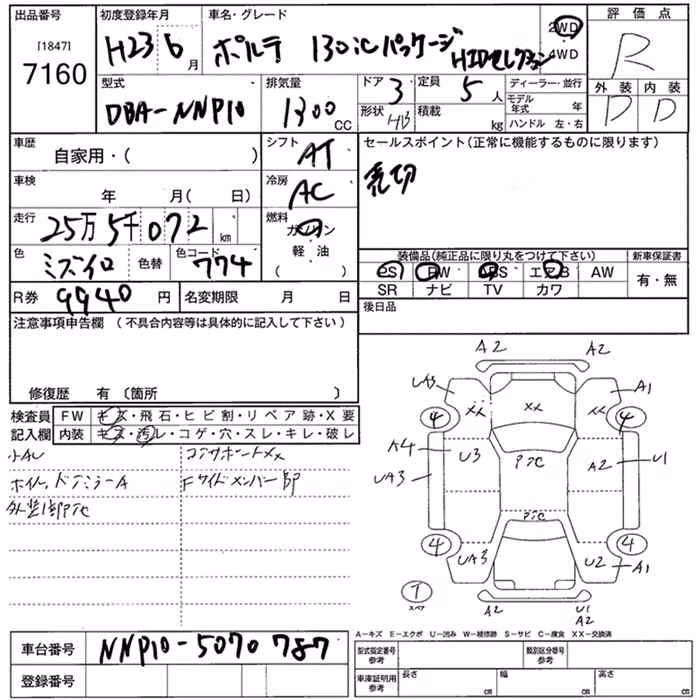 出品番号 初度登録年月 車名・グレード 評価点
[1847]
7160
H23 6月 ポルテ 130iCパッケージ HIDセレクション 2WD 4WD R
型式 排気量 ドア 定員 ディーラー・並行 外装 内装
DBA-NNP10 1300 CC 3 5人 モデル年式 年 D D
形状 HB 積載 kg ハンドル 左・右
車歴 シフト セールスポイント(正常に機能するものに限ります)
自家用・( ) AT 売切
車検 冷房
年 月( 日) AC
走行 燃料
25万5千072 km ガソリン
軽・油
( )
色 色替 色コード 装備品(純正品に限り丸をつけて下さい) 新車保証書
ミズイロ 774 PS PW ABS エアB AW 有・無
SR ナビ TV カワ
R券 9940円 名変期限 月 日 後日品
注意事項申告欄 (不具合内容等は具体的に記入して下さい)
修復歴 有 〔箇所 〕
検査員記入欄 FW キズ・飛石・ヒビ割・リペア跡・X要
内装 キズ・汚レ・コゲ・穴・スレ・キレ・破レ
小AU コアサポートXX
ホイル、ドアミラーA Fサイドメンバー
外装
A2 A2
UA3 A1
XX XX XX
4 4
A4 U3 PTC A2 U1
UA3
PTC
4 4
UA3 U2 A1
7 スペア
A2 U1
A2
A-キズ E-エクボ U-凹み W-補修跡 S-サビ C-腐食 XX-交換済
車台番号 NNP10-5070787
登録番号
型式指定番号 参考 類別区分番号 参考
車庫証明用 参考 長さ cm 幅 cm 高さ cm